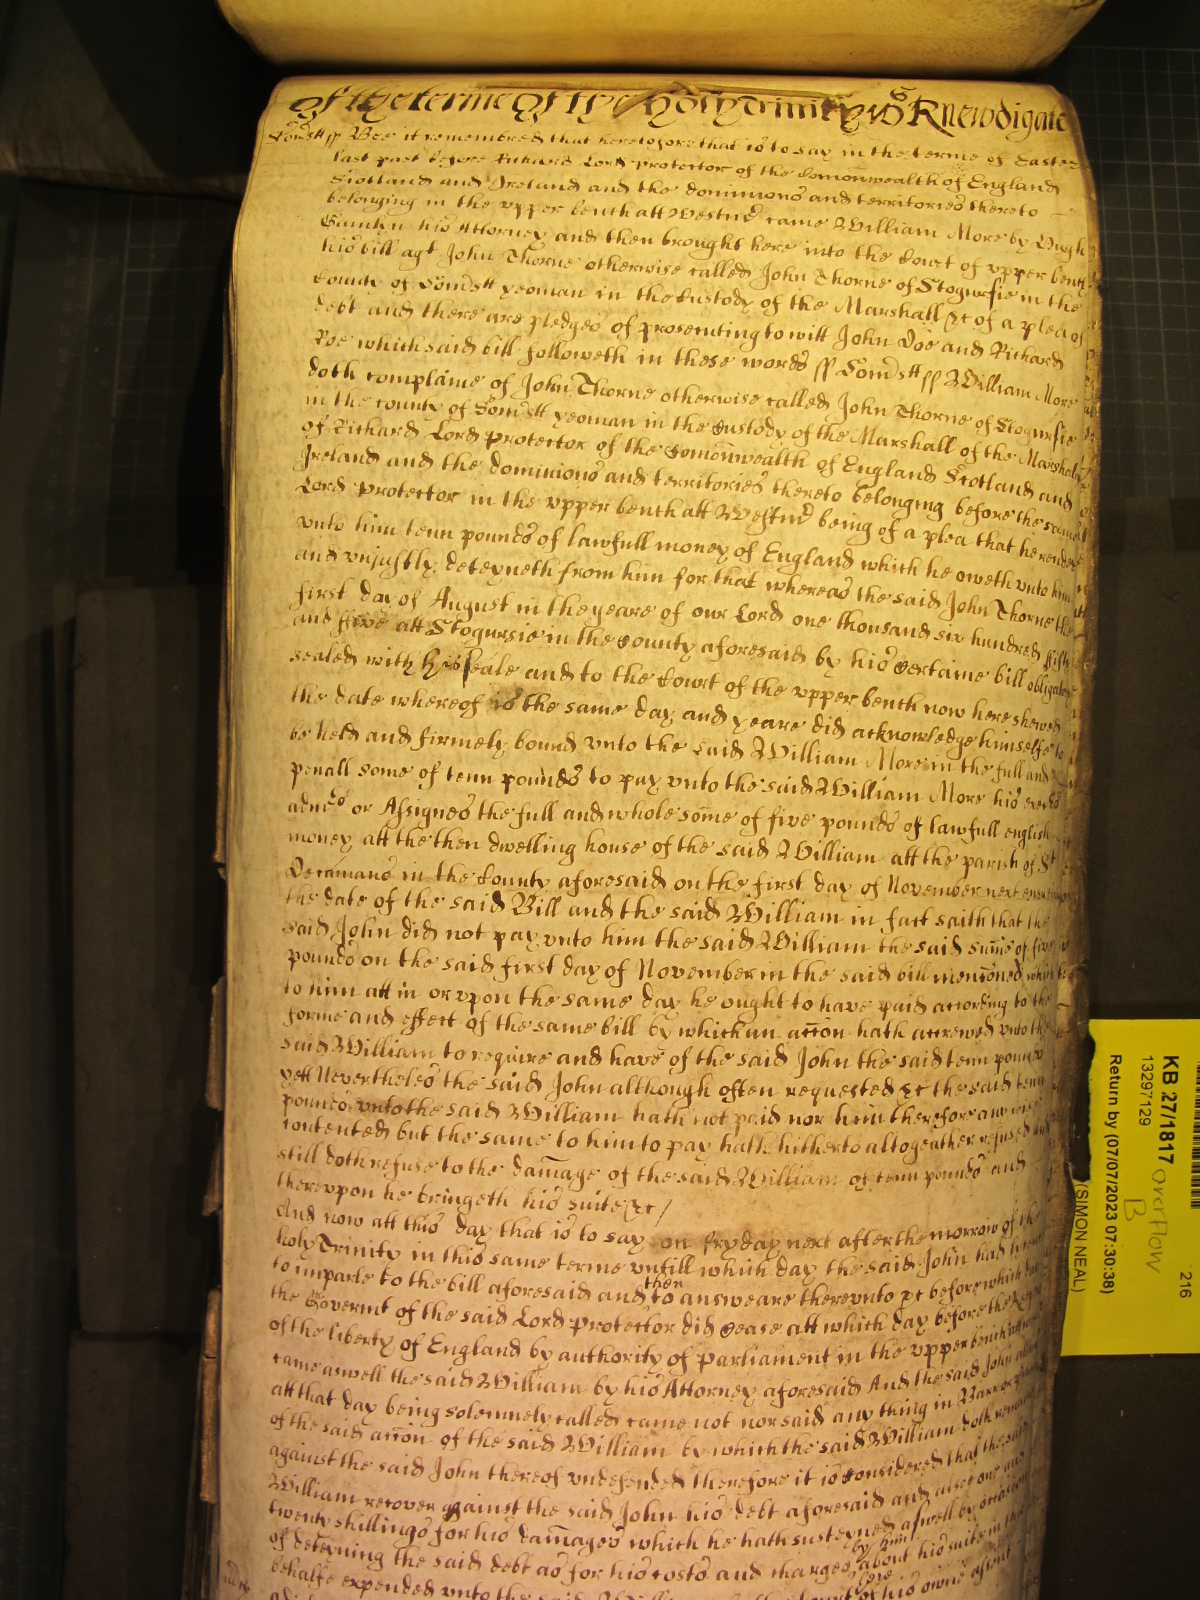 Of the terme Of the Holy Trinity R Newdigate
Somstt ss Bee it remembred that heretofore that is to say in the terme of Easter
last past before Richard Lord Protector of the Comonwealth of England
Scotland and Ireland and the dominions and territories thereto
belonging in the upper bench att Westmr came William More by Hugh
his Attorney and then brought here into the Court of upper bench
his bill agt John Thorne otherwise called John Thorne of Stogursie in the
County of Somstt yeoman in the Custody of the Marshall &c of a plea of
debt and there are pledges of prosecuting to witt John Doe and Richard
Roe which said bill followeth in these words ss Somstt ss William More
doth complaine of John Thorne otherwise called John Thorne of Stogursie
in the county of Somstt yeoman in the Custody of the Marshall of the Marshalsey
of Richard Lord Protector of the Comonwealth of England Scotland and
Ireland and the dominions and territories thereto belonging before the same
Lord Protector in the upper bench att Westmr being of a plea that he render
unto him tenn pounds of lawfull money of England which he oweth unto him
and unjustly deteyneth from him for that whereas the said John Thorne the
first day of August in the yeare of our Lord one thousand six hundred fiftie
and five att Stogursie in the County aforesaid by his certaine bill obligatory
sealed with his seale and to the Court of the upper bench now here shewed
the date whereof is the same day and yeare did acknowledge himselfe to
be held and firmely bound unto the said William More in the full and
penall some of tenn pounds to pay unto the said William More his exectrs
admrs or Assignes the full and whole some of five pounds of lawfull english
money att the then dwelling house of the said William att the parish of St
Decamans in the County aforesaid on the first day of November next ensueing
the date of the said Bill and the said William in fact saith that the
said John did not pay unto him the said William the said sume of five
pounds on the said first day of November in the said bill mencioned which
to him att in or upon the same day he ought to have paid according to the
forme and effect of the same bill by which an accon hath accrewed unto the
said William to require and have of the said John the said tenn pounds
yett Nevertheles the said John although often requested &c the said tenn
pounds unto the said William hath not paid nor him therefore any wise
contented but the same to him to pay hath hitherto altogeather refused and
still doth refuse to the damage of the said William of tenn pounds and
thereupon he bringeth his suite &c /
And now att this day that is to say on fryday next after the morrow of the
holy Trinity in this same terme untill which day the said John had lycence
to imparle to the bill aforesaid and then to answeare thereunto &c before which day
the Governmt of the said Lord Protector did cease att which day before the Keepers
of the liberty of England by authority of Parliament in the upper bench att
came aswell the said William by his Attorney aforesaid And the said John
att that day being solemnely called came not nor said any thing in Barr or
of the said accon of the said William by which the said William doth remaine
against the said John thereof undefended Therefore it is considered that the said
William recover against the said John his debt aforesaid and alsoe one and
twenty shillings for his damages which he hath susteyned aswell by occasion
of deteyning the said debt as for his costs and charges by him about his suite in this
behalfe expended unto the said William by the Court here of his owne assent
KB 27/1817 overflow
B
13297129
216
Return by (07/07/2023 07:30:38)
(SIMON NEAL)